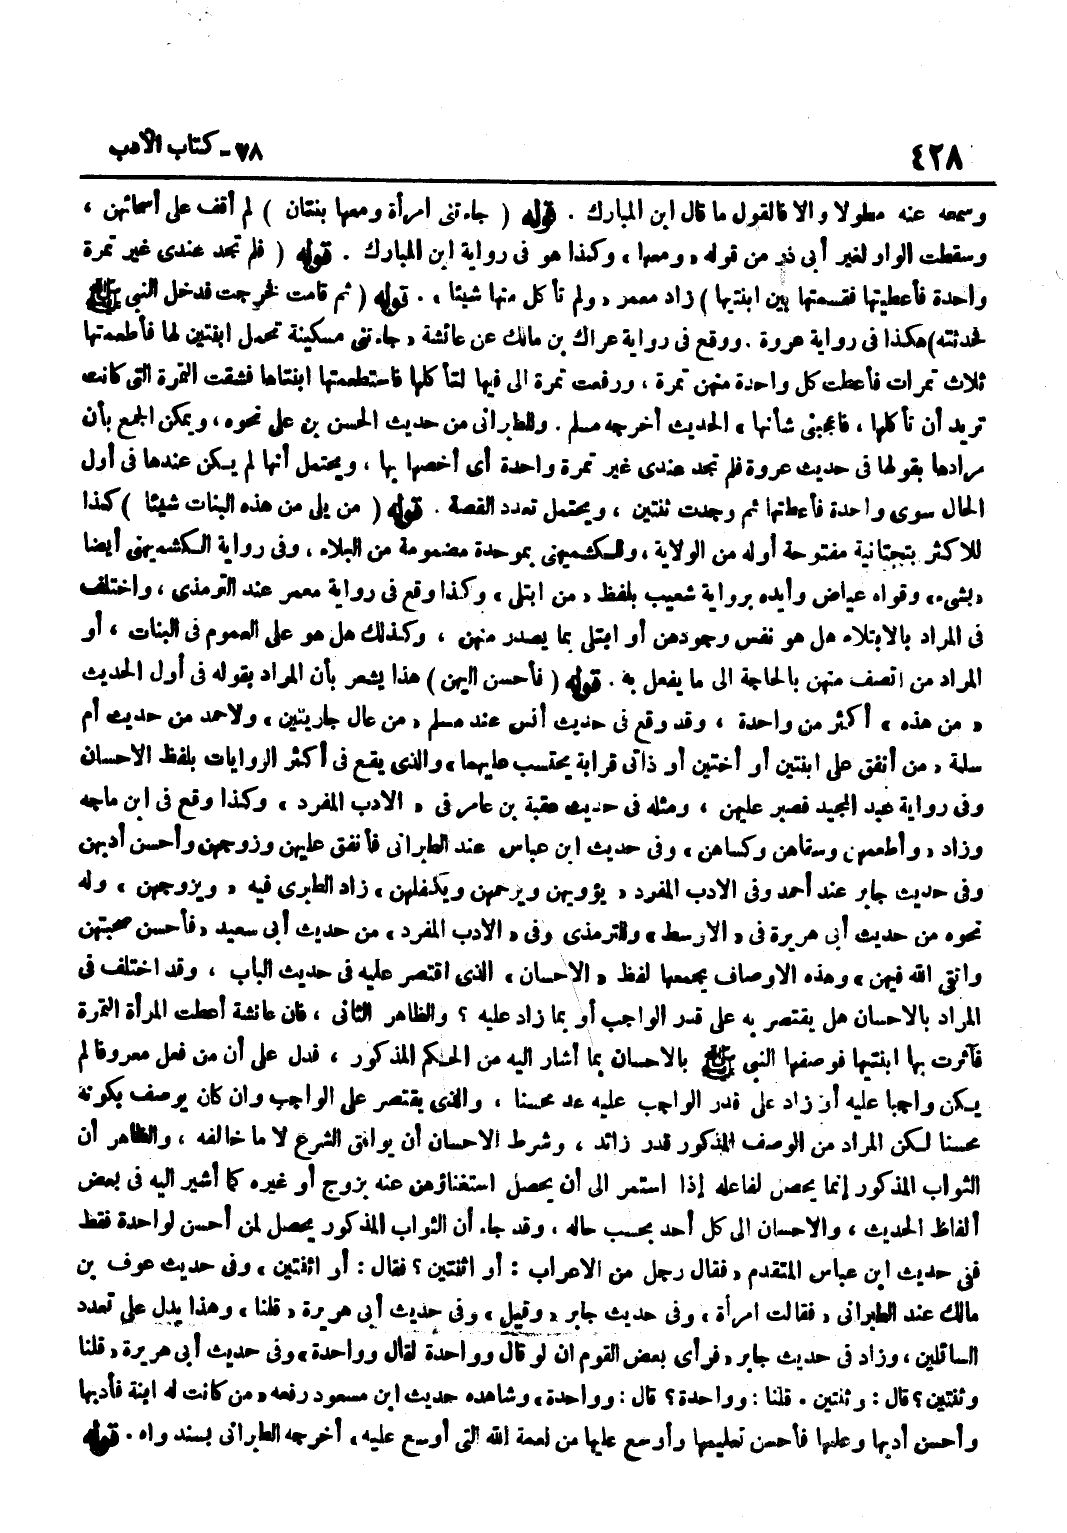 ٤٢٨
٧٨ - كتاب الأدب
وسمعه عنه مطولا والا فالقول ما قال ابن المبارك . قوله ( جاءتنى امرأة ومعها بنتان ) لم أقف على أسمائهن ،
وسقطت الواو لغير أبى ذر من قوله « ومعها » وكذا هو فى رواية ابن المبارك . قوله ( فلم تجد عندى غير تمرة
واحدة فأعطيتها فقسمتها بين ابنتيها ) زاد معمر « ولم تأكل منها شيئا » . قوله ( ثم قامت فخرجت فدخل النبى ﷺ
فحدثته ) هكذا فى رواية عروة . ووقع فى رواية عراك بن مالك عن عائشة « جاءتنى مسكينة تحمل ابنتين لها فأطعمتها
ثلاث تمرات فأعطت كل واحدة منهن تمرة ، ورفعت تمرة الى فيها لتأكلها فاستطعمتها ابنتاها فشقت التمرة التى كانت
تريد أن تأكلها ، فأعجبنى شأنها » الحديث أخرجه مسلم . وللطبرانى من حديث الحسن بن على نحوه ، ويمكن الجمع بأن
مرادها بقولها فى حديث عروة فلم تجد عندى غير تمرة واحدة أى أخصها بها ، ويحتمل أنها لم يكن عندها فى أول
الحال سوى واحدة فأعطتها ثم وجدت ثنتين ، ويحتمل تعدد القصة . قوله ( من يلى من هذه البنات شيئا ) كذا
للاكثر بتحتانية مفتوحة أوله من الولاية ، وللكشميهنى بموحدة مضمومة من البلاء ، وفى رواية الكشميهنى أيضا
« بشىء » وقواه عياض وأيده برواية شعيب بلفظ « من ابتلى » وكذا وقع فى رواية معمر عند الترمذى ، واختلف
فى المراد بالابتلاء هل هو نفس وجودهن أو ابتلى بما يصدر منهن ، وكذلك هل هو على العموم فى البنات ، أو
المراد من اتصف منهن بالحاجة الى ما يفعل به . قوله ( فأحسن اليهن ) هذا يشعر بأن المراد بقوله فى أول الحديث
« من هذه » أكثر من واحدة ، وقد وقع فى حديث أنس عند مسلم « من عال جاريتين » ولاحمد من حديث أم
سلمة « من أنفق على ابنتين أو أختين أو ذاتى قرابة يحتسب عليهما » والذى يقع فى أكثر الروايات بلفظ الاحسان
وفى رواية عبد المجيد فصبر عليهن ، ومثله فى حديث عقبة بن عامر فى « الادب المفرد » وكذا وقع فى ابن ماجه
وزاد « وأطعمهن وسقاهن وكساهن » وفى حديث ابن عباس عند الطبرانى فأنفق عليهن وزوجهن وأحسن أدبهن
وفى حديث جابر عند أحمد وفى الادب المفرد « يؤويهن ويرحمهن ويكفلهن » زاد الطبرى فيه « ويزوجهن » وله
نحوه من حديث أبى هريرة فى « الاوسط » وللترمذى وفى « الادب المفرد » من حديث أبى سعيد « فأحسن صحبتهن
واتقى الله فيهن » وهذه الاوصاف يجمعها لفظ « الاحسان » الذى اقتصر عليه فى حديث الباب ، وقد اختلف فى
المراد بالاحسان هل يقتصر به على قدر الواجب أو بما زاد عليه ؟ والظاهر الثانى ، فان عائشة أعطت المرأة التمرة
فآثرت بها ابنتيها فوصفها النبى ﷺ بالاحسان بما أشار اليه من الحكم المذكور ، فدل على أن من فعل معروفا لم
يكن واجبا عليه أو زاد على قدر الواجب عليه عد محسنا ، والذى يقتصر على الواجب وان كان يوصف بكونه
محسنا لكن المراد من الوصف المذكور قدر زائد ، وشرط الاحسان أن يوافق الشرع لا ما خالفه ، والظاهر أن
الثواب المذكور إنما يحصل لفاعله إذا استمر الى أن يحصل استغناؤهن عنه بزوج أو غيره كما أشير اليه فى بعض
ألفاظ الحديث ، والاحسان الى كل أحد بحسب حاله ، وقد جاء أن الثواب المذكور يحصل لمن أحسن لواحدة فقط
ففى حديث ابن عباس المتقدم « فقال رجل من الاعراب : أو اثنتين ؟ فقال : أو اثنتين » وفى حديث عوف بن
مالك عند الطبرانى « فقالت امرأة » وفى حديث جابر « وقيل » وفى حديث أبى هريرة « قلنا » وهذا يدل على تعدد
السائلين ، وزاد فى حديث جابر « فرأى بعض القوم ان لو قال وواحدة لقال وواحدة » وفى حديث أبى هريرة « قلنا
وثنتين ؟ قال : وثنتين . قلنا : وواحدة ؟ قال : وواحدة » وشاهده حديث ابن مسعود رفعه « من كانت له ابنة فأدبها
وأحسن أدبها وعلمها فأحسن تعليمها وأوسع عليها من نعمة الله التى أوسع عليه » أخرجه الطبرانى بسند واه . قوله